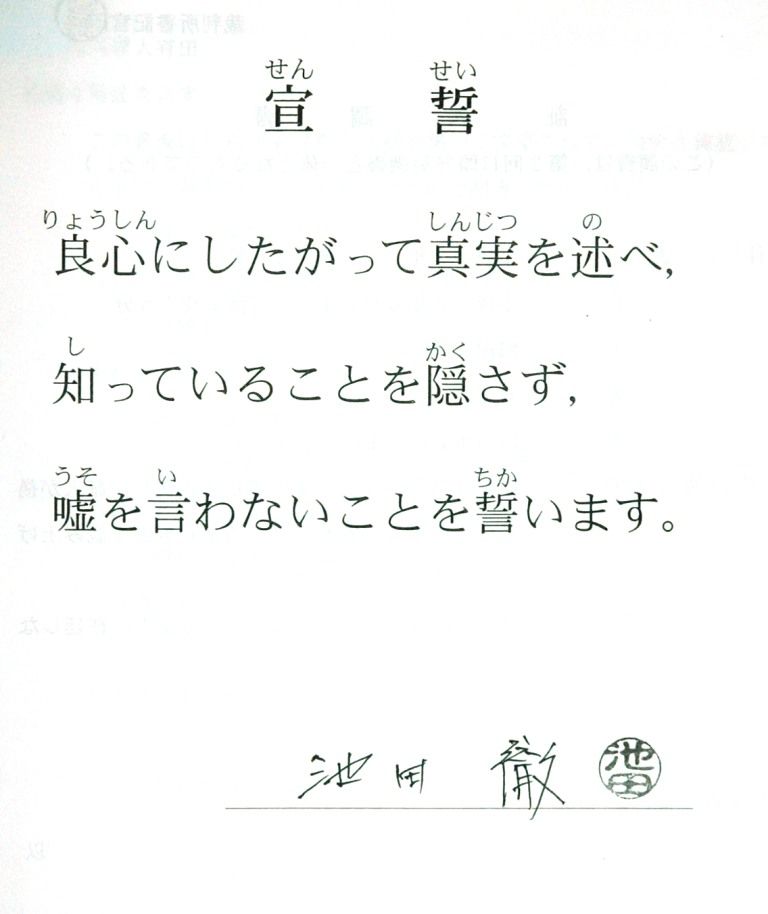 せん せい
宣 誓
りょうしん しんじつ の
良心にしたがって真実を述べ,
し かく
知っていることを隠さず,
うそ い ちか
嘘を言わないことを誓います。
池田 徹 池田